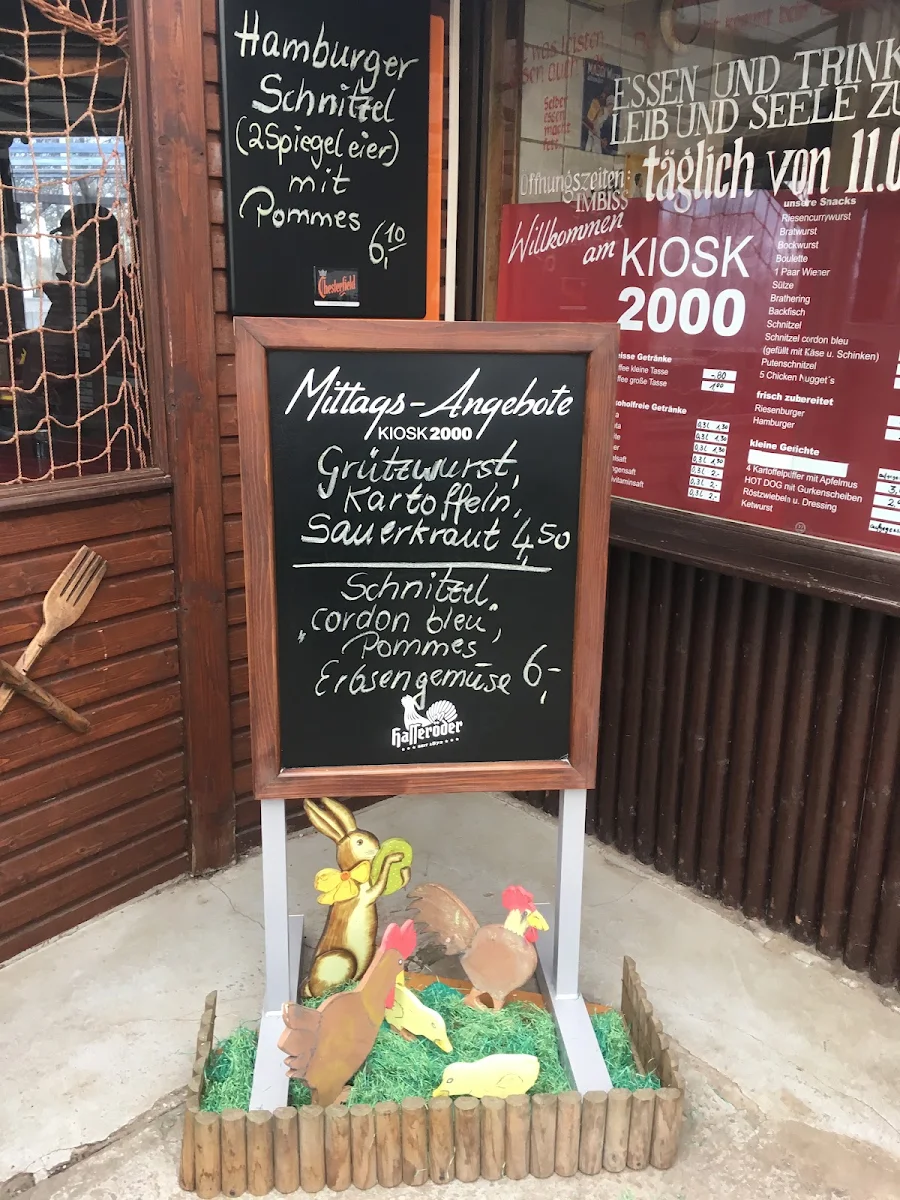 Hamburger
Schnitzel
(2 Spiegeleier)
mit
Pommes
6,10
Chesterfield
ESSEN UND TRINK
LEIB UND SEELE ZU
täglich von 11.0
Öffnungszeiten:
IMBISS
Willkommen
am
KIOSK
2000
unsere Snacks
Riesencurrywurst
Bratwurst
Bockwurst
Boulette
1 Paar Wiener
Sülze
Brathering
Backfisch
Schnitzel
Schnitzel cordon bleu
(gefüllt mit Käse u. Schinken)
Putenschnitzel
5 Chicken Nugget´s
frisch zubereitet
Riesenburger
Hamburger
kleine Gerichte
4 Kartoffelpuffer mit Apfelmus
HOT DOG mit Gurkenscheiben
Röstzwiebeln u. Dressing
Ketwurst
isse Getränke
ffee kleine Tasse -80
ffee große Tasse 1,00
oholfreie Getränke
0,3L 1,30
0,3L 1,30
0,3L 1,30
0,3L 1,30
0,3L 2,-
0,3L 2,-
Mittags-Angebote
KIOSK2000
Grützwurst,
Kartoffeln,
Sauerkraut 4,50
Schnitzel
„cordon bleu",
Pommes
Erbsengemüse 6,-
Hasseröder